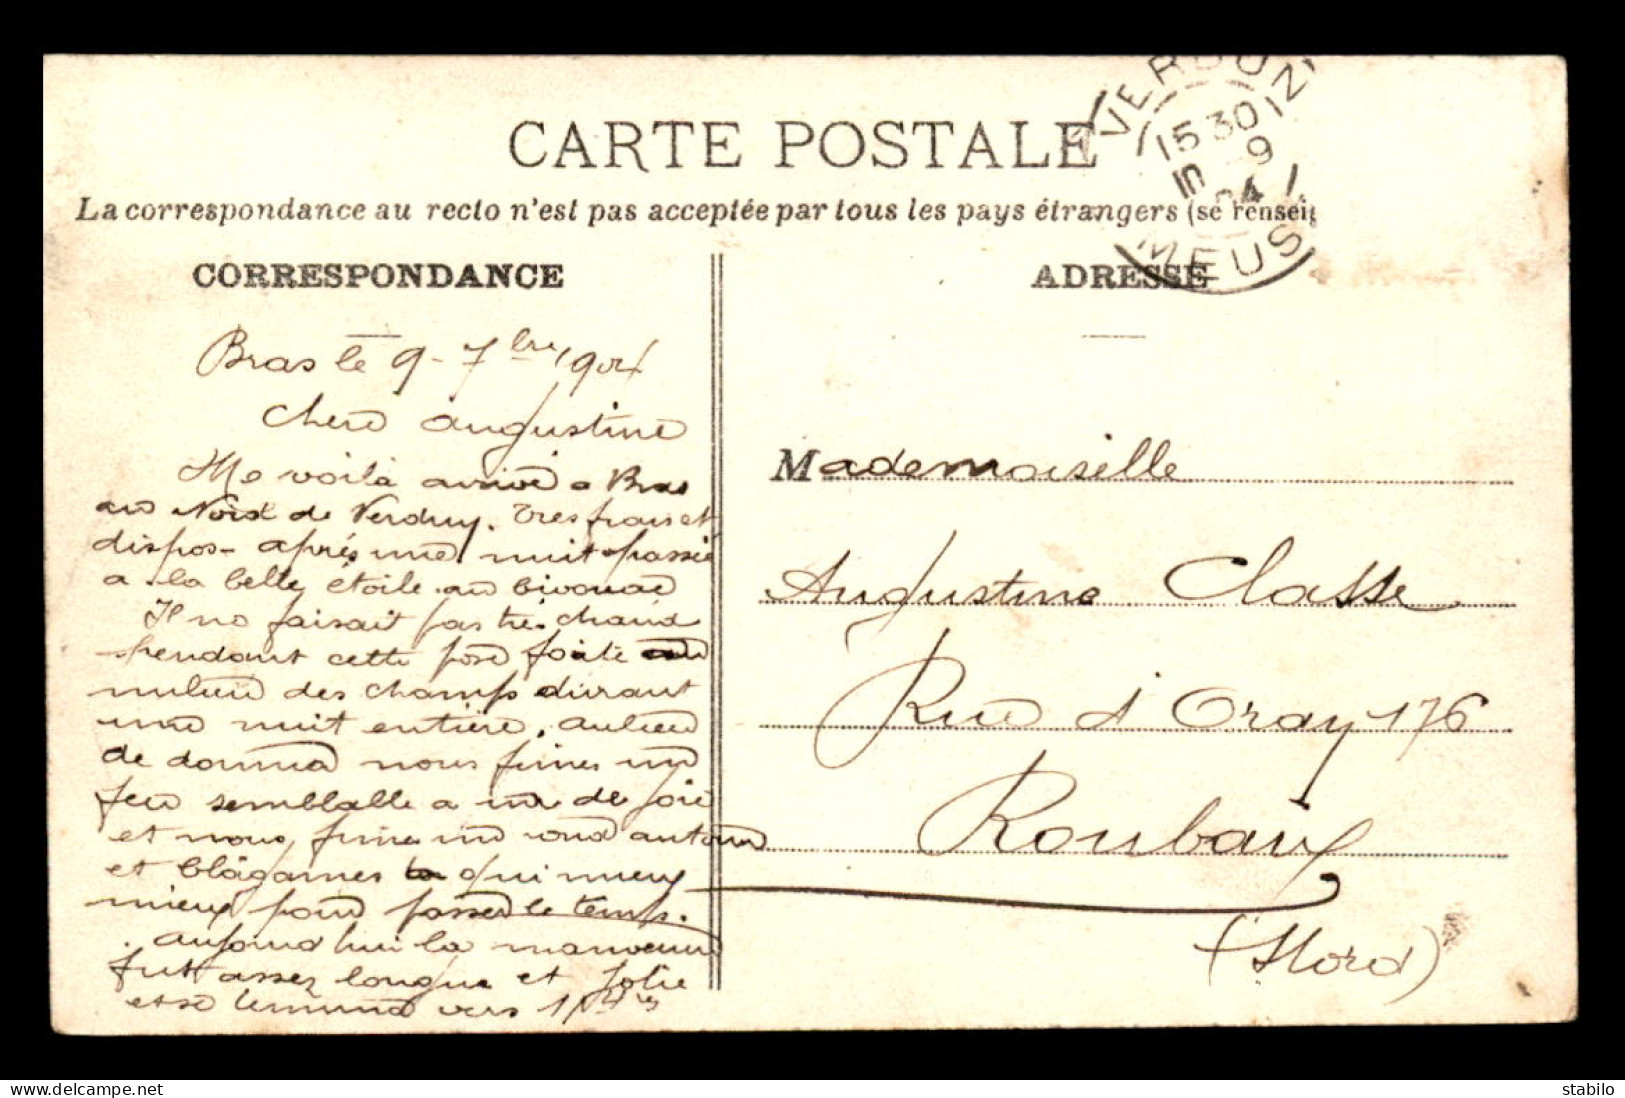 VERDUN
15 30
10 9
04
MEUSE
CARTE POSTALE
La correspondance au recto n'est pas acceptée par tous les pays étrangers (se renseig
CORRESPONDANCE
Bras le 9 - 7bre 1904
Chere augustine
Me voilà arrivé a Bras
au Nord de Verdun. tres frais et
dispos - aprés une nuit passée
a la belle étoile au bivouac
Il ne faisait pas tres chaud
pendant cette pose forcée au
milieu des champs durant
une nuit entière. au lieu
de dormir nous fimes un
feu semblable a un de joie
et nous fimes un rond autour
et blâgames qui mieux
mieux pour passer le temps.
aujourd'hui la manoeuvre
fut assez longue et jolie
et se termina vers 11 h
ADRESSE
Mademoiselle
Augustine Classe
Rue d'Oray 176
Roubaix
(Nord)
stabilo